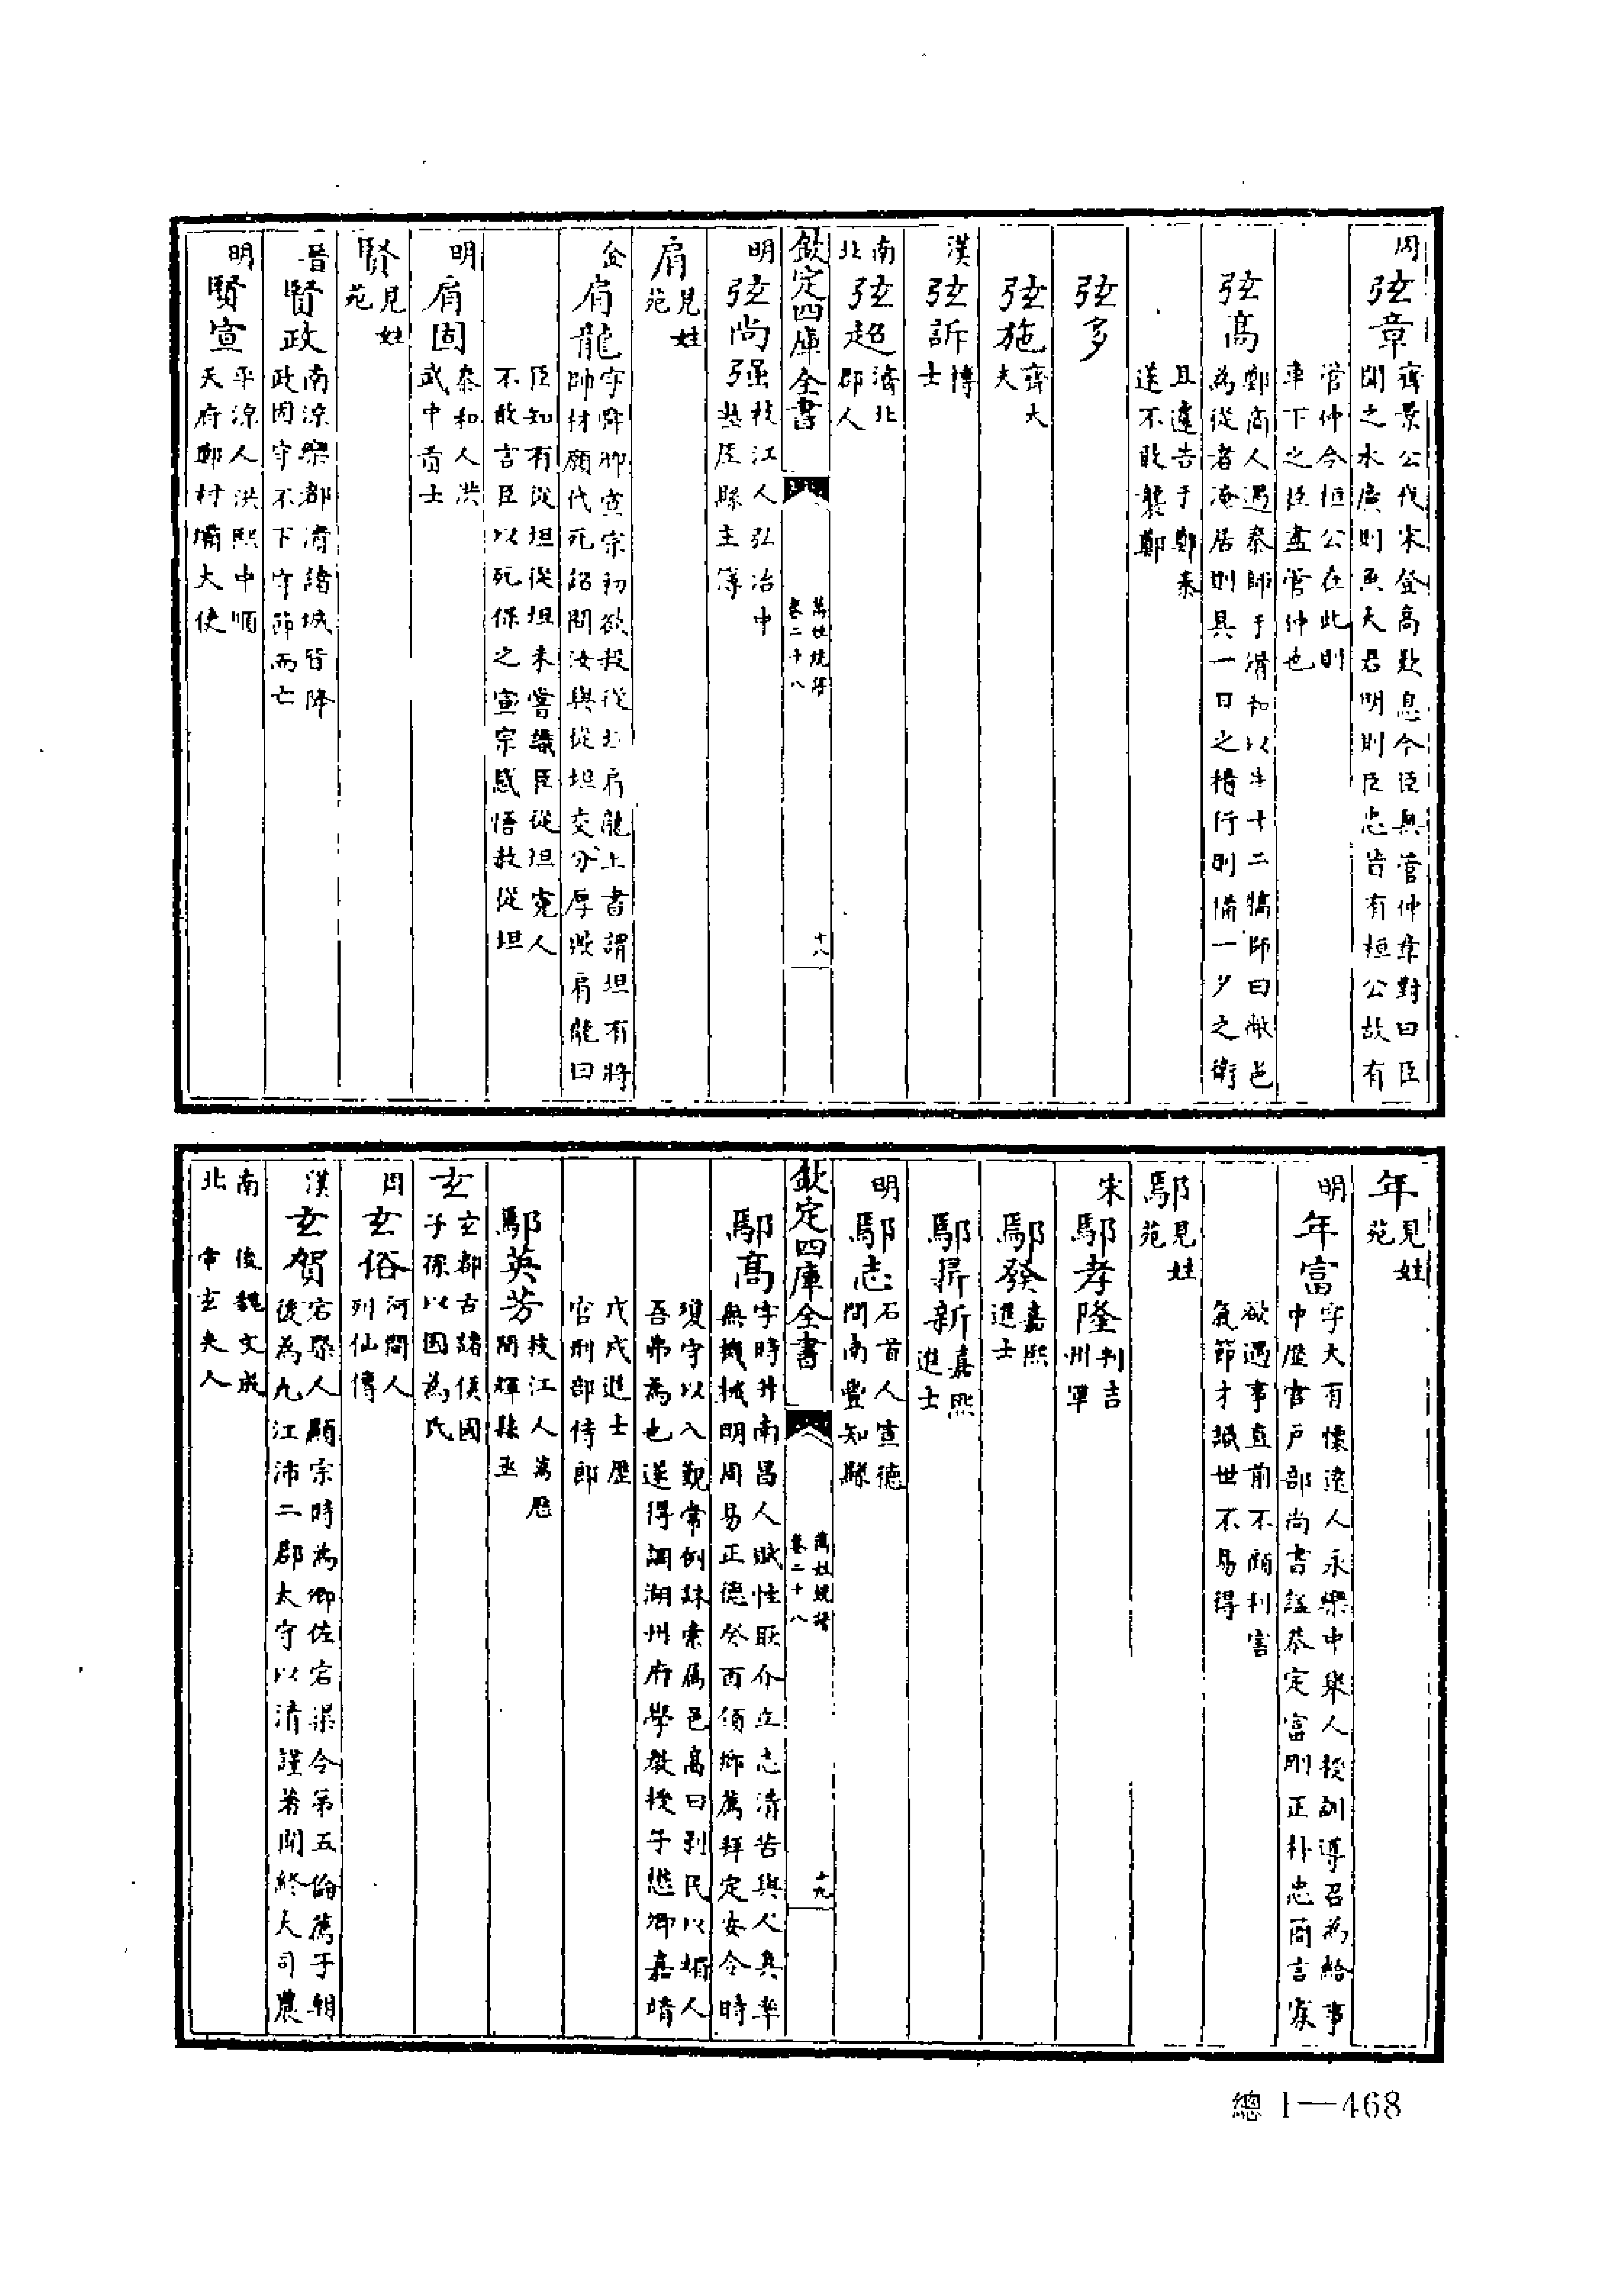 周
弦章齊景公伐宋登高歎息今臣無管仲章對曰臣
聞之水廣則魚大君明則臣忠昔有桓公故有
管仲今桓公在此則
車下之臣盡管仲也
弦高鄭商人遇秦師于滑和以牛十二犒師曰敝邑
為從者淹居則具一日之積行則備一夕之衛
且遽告于鄭秦
遂不敢襲鄭
弦多
弦施齊大
夫
漢
弦訴博
士
南北
弦超濟北
郡人
欽定四庫全書
萬姓統譜
卷二十八
十八
明
弦尚强枝江人弘治中
縣主簿
肩見姓
苑
金
肩龍字舜卿宣宗初欲殺從坦肩龍上書謂坦有將
帥材願代死詔問汝與從坦交分厚歟肩龍曰
臣知有從坦從坦未嘗識臣從坦冤人
不敢言臣以死保之宣宗感悟赦從坦
明
肩固泰和人洪
武中貢士
賢見姓
苑
晉
賢政南涼樂都潰諸城皆降
政固守不下守節而亡
明
賢宣平涼人洪熙中順
天府鄭村壩大使
年見姓
苑
明
年富字大有懐遠人永樂中舉人授訓導召為給事
中歴官戶部尚書謚恭定富剛正朴忠簡言寡
欲遇事直前不顧利害
氣節才識世不易得
鄔見姓
苑
宋
鄔孝隆判吉
州軍
鄔發嘉熙
進士
鄔 新嘉熙
進士
明
鄔志石首人宣德
間南豐知縣
欽定四庫全書
萬姓統譜
卷二十八
十九
鄔高字時升南昌人賦性耿介立志清苦與人無
無機械明周易正德癸酉領鄉薦拜定安令時
瓊守以入覲常例 索屬邑高曰剥民以媚人
吾弗為也遂得調湖州府學教授子懋卿嘉靖
戊戌進士歴
官刑部侍郎
鄔英芳枝江人萬歴
間輝縣丞
玄玄都古諸侯國
子孫以國為氏
周
玄俗河間人
列仙傳
漢
玄賀宕渠人顯宗時為鄉佐宕渠令第五倫薦于朝
後為九江沛二郡太守以清謹著聞終大司農
南北
後魏文成
帝玄夫人
總1—468